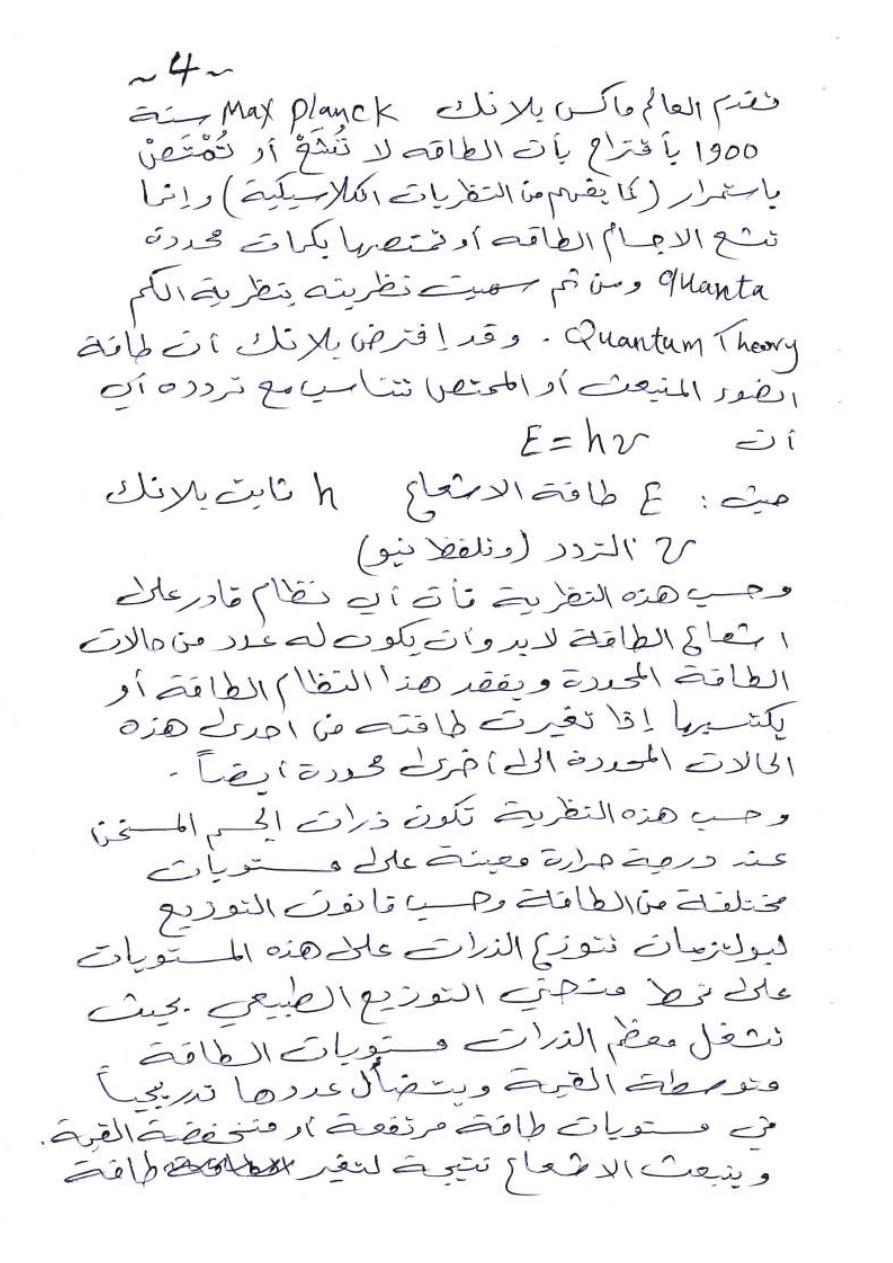 ~ 4 ~
تقدم العالم ماكس بلانك Max Planck سنة
1900 بأقتراح بأن الطاقه لا تُشَعْ أو تُمْتَصْ
باستمرار (كما يفهم من النظريات الكلاسيكية) وإنما
تشع الاجسام الطاقه أو تمتصها بكمات محددة
quanta ومن ثم سميت نظريته بنظرية الكم
Quantum Theory . وقد إفترض بلانك أن طاقة
الضوء المنبعث أو الممتص تتناسب مع تردده أي
أن E = hν
حيث : E طاقة الاشعاع h ثابت بلانك
ν التردد (وتلفظ نيو)
وحسب هذه النظرية فأن أي نظام قادر على
اشعاع الطاقة لابد وأن يكون له عدد من حالات
الطاقة المحددة ويفقد هذا النظام الطاقة أو
يكتسبها إذا تغيرت طاقته من احدى هذه
الحالات المحددة الى أخرى محددة أيضاً .
وحسب هذه النظرية تكون ذرات الجسم المسخن
عند درجة حرارة معينة على مستويات
مختلفة من الطاقة وحسب قانون التوزيع
لبولتزمان تتوزع الذرات على هذه المستويات
على نمط منحني التوزيع الطبيعي . بحيث
تشغل معظم الذرات مستويات الطاقة
متوسطة القيمة ويتضأل عددها تدريجياً
في مستويات طاقة مرتفعة أو منخفضة القيمة .
وينبعث الاشعاع نتيجة لتغير طاقة